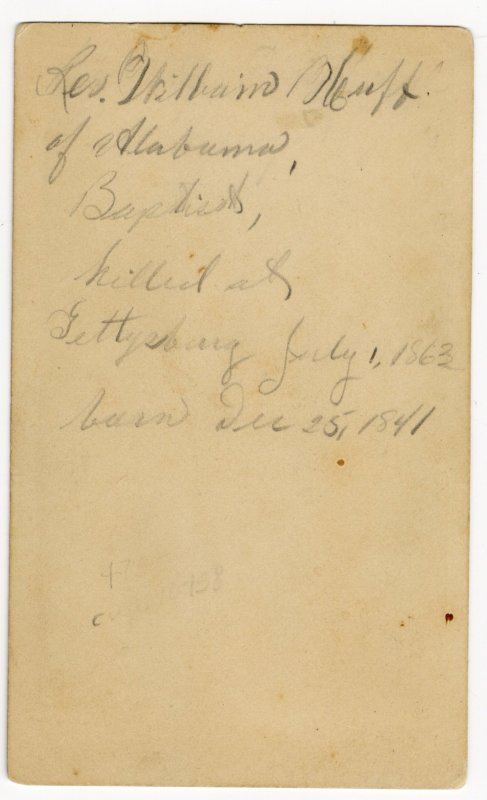 Rev. William Huff
of Alabama,
Baptist,
killed at
Gettysburg July 1, 1863
born Dec 25, 1841